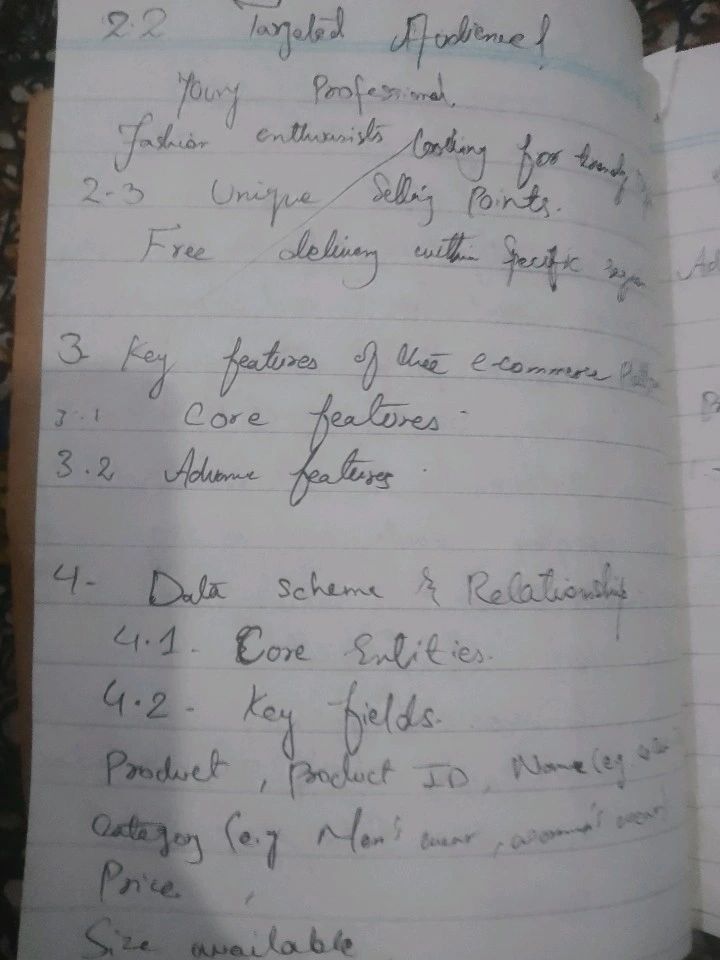 2.2 Targeted Audience!
Young Professional.
Fashion enthusists looking for trendy
2-3 Unique Selling Points.
Free delivery within Specific
3 Key features of thee e-commerce
3.1 Core features -
3.2 Advance features.
4- Data scheme & Relationship
4.1. Core Entities.
4.2. Key fields.
Product, Product ID, Name (eg
Category (e.g Men's wear, women's wear)
Price,
Size available